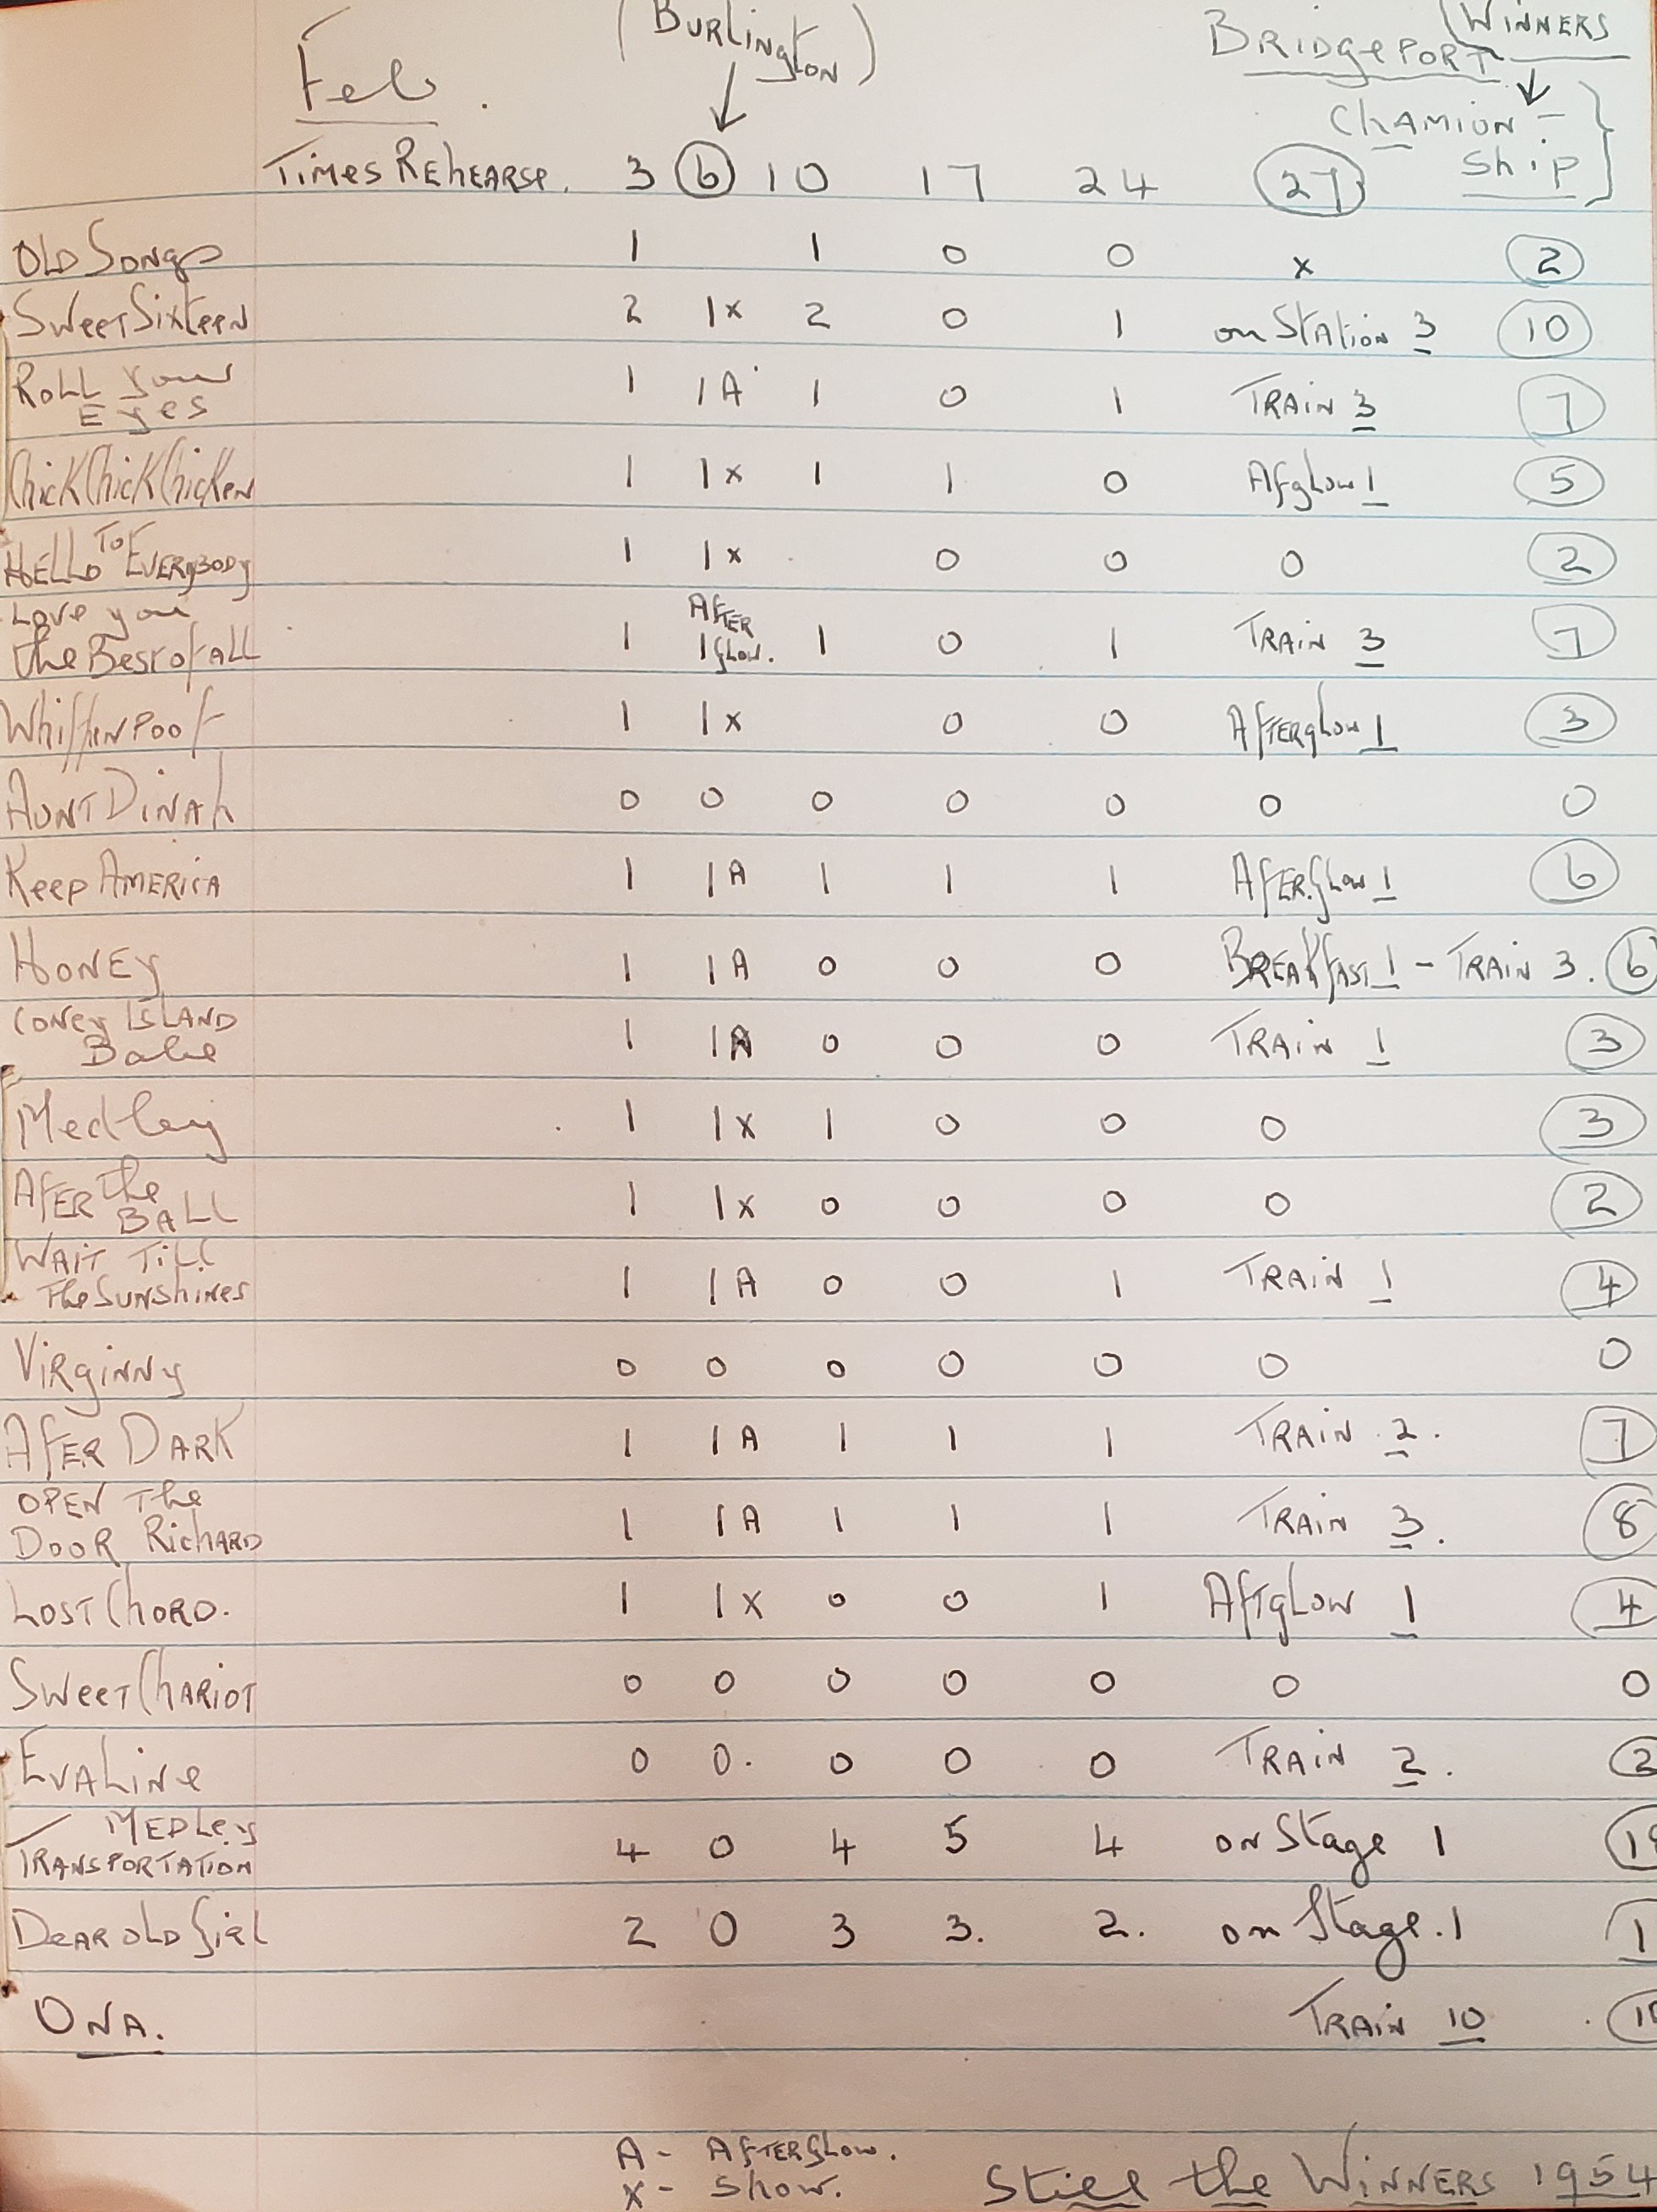 (Burlington) Bridgeport (Winners
Feb. Chamion-
ship
Times Rehearse. 3 6 10 17 24 27
Old Songs 1 1 0 0 x 2
Sweet Sixteen 2 1x 2 0 1 on Station 3 10
Roll your
Eyes 1 1A 1 0 1 Train 3 7
Chick Chick Chicken 1 1x 1 1 0 Afglow 1 5
Hello to Everybody 1 1x 0 0 0 2
Love you After
the Best of all 1 1 glow. 1 0 1 Train 3 7
Whiffenpoof 1 1x 0 0 Afterglow 1 3
Aunt Dinah 0 0 0 0 0 0 0
Keep America 1 1A 1 1 1 After.glow 1 6
Honey 1 1A 0 0 0 Breakfast 1 - Train 3. 6
Coney Island
Babe 1 1A 0 0 0 Train 1 3
Medley 1 1x 1 0 0 0 3
Afer the
Ball 1 1x 0 0 0 0 2
Wait Till
the Sunshines 1 1A 0 0 1 Train 1 4
Virginny 0 0 0 0 0 0 0
Afer Dark 1 1A 1 1 1 Train 2. 7
Open the
Door Richard 1 1A 1 1 1 Train 3. 8
Lost Chord. 1 1x 0 0 1 Aftglow 1 4
Sweet Chariot 0 0 0 0 0 0 0
Evaline 0 0. 0 0 0 Train 2. 2
Medley
Transportation 4 0 4 5 4 on Stage 1
Dear old Girl 2 0 3 3. 2. on Stage. 1
Ona. Train 10
A - Afterglow.
x - Show.
Still the Winners 1954